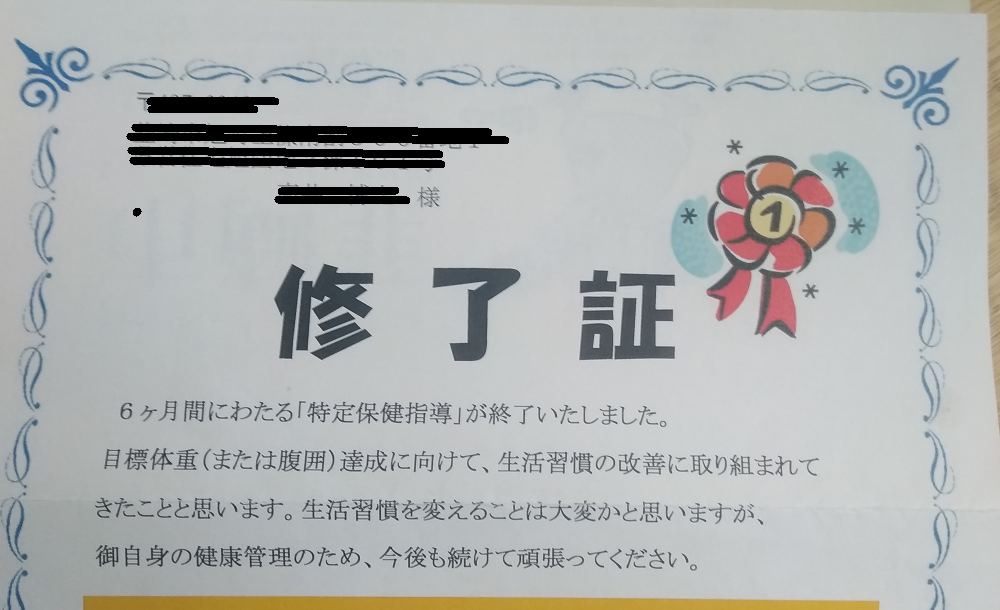 〒
様
1
修了証
６ヶ月間にわたる「特定保健指導」が終了いたしました。
目標体重（または腹囲）達成に向けて、生活習慣の改善に取り組まれて
きたことと思います。生活習慣を変えることは大変かと思いますが、
御自身の健康管理のため、今後も続けて頑張ってください。